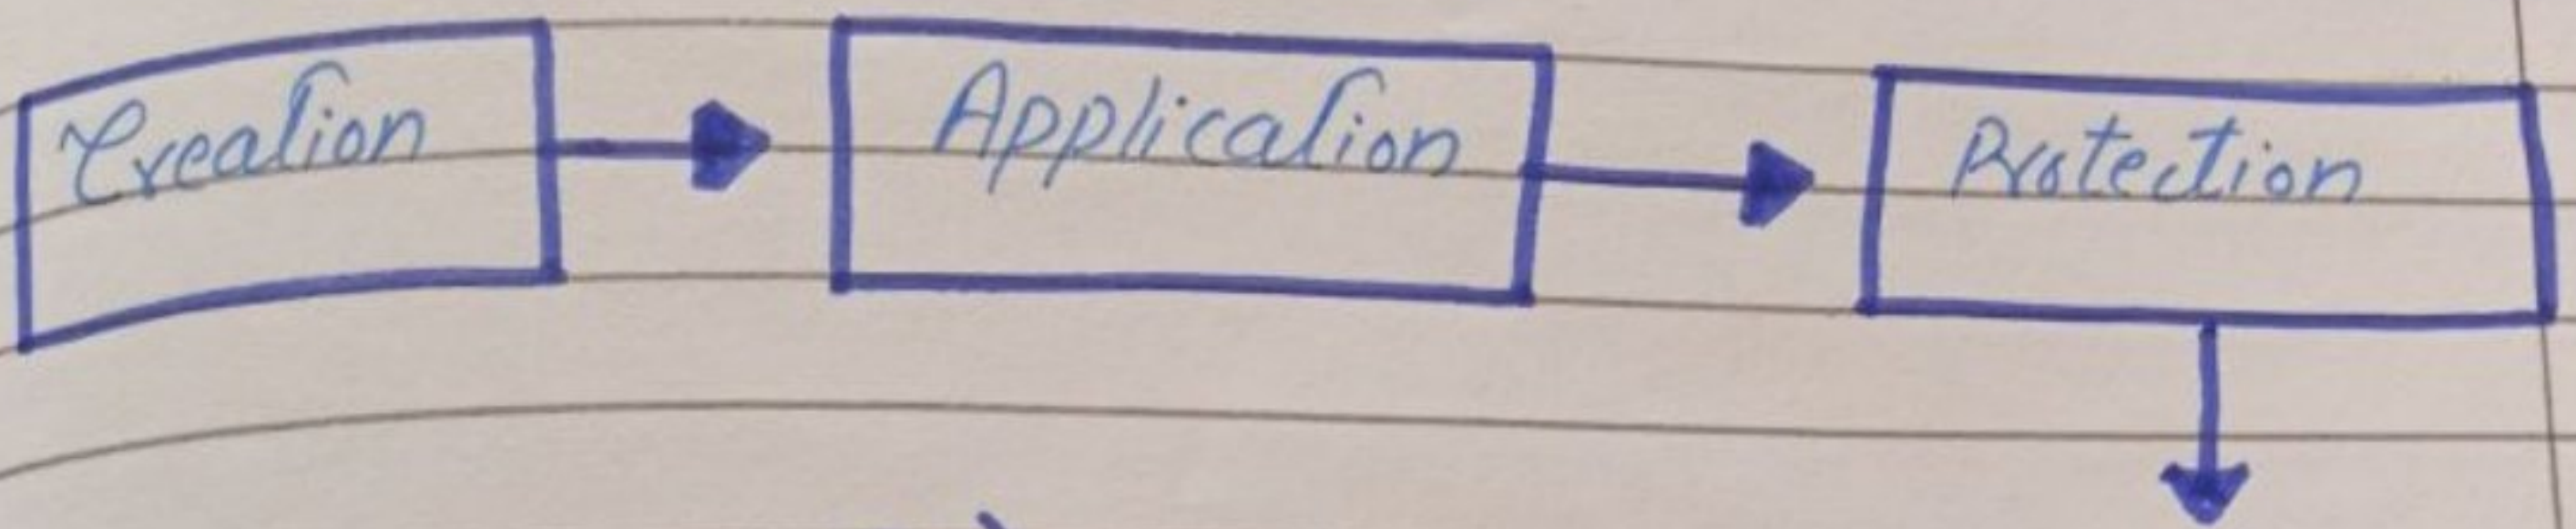 Creation Application Protection